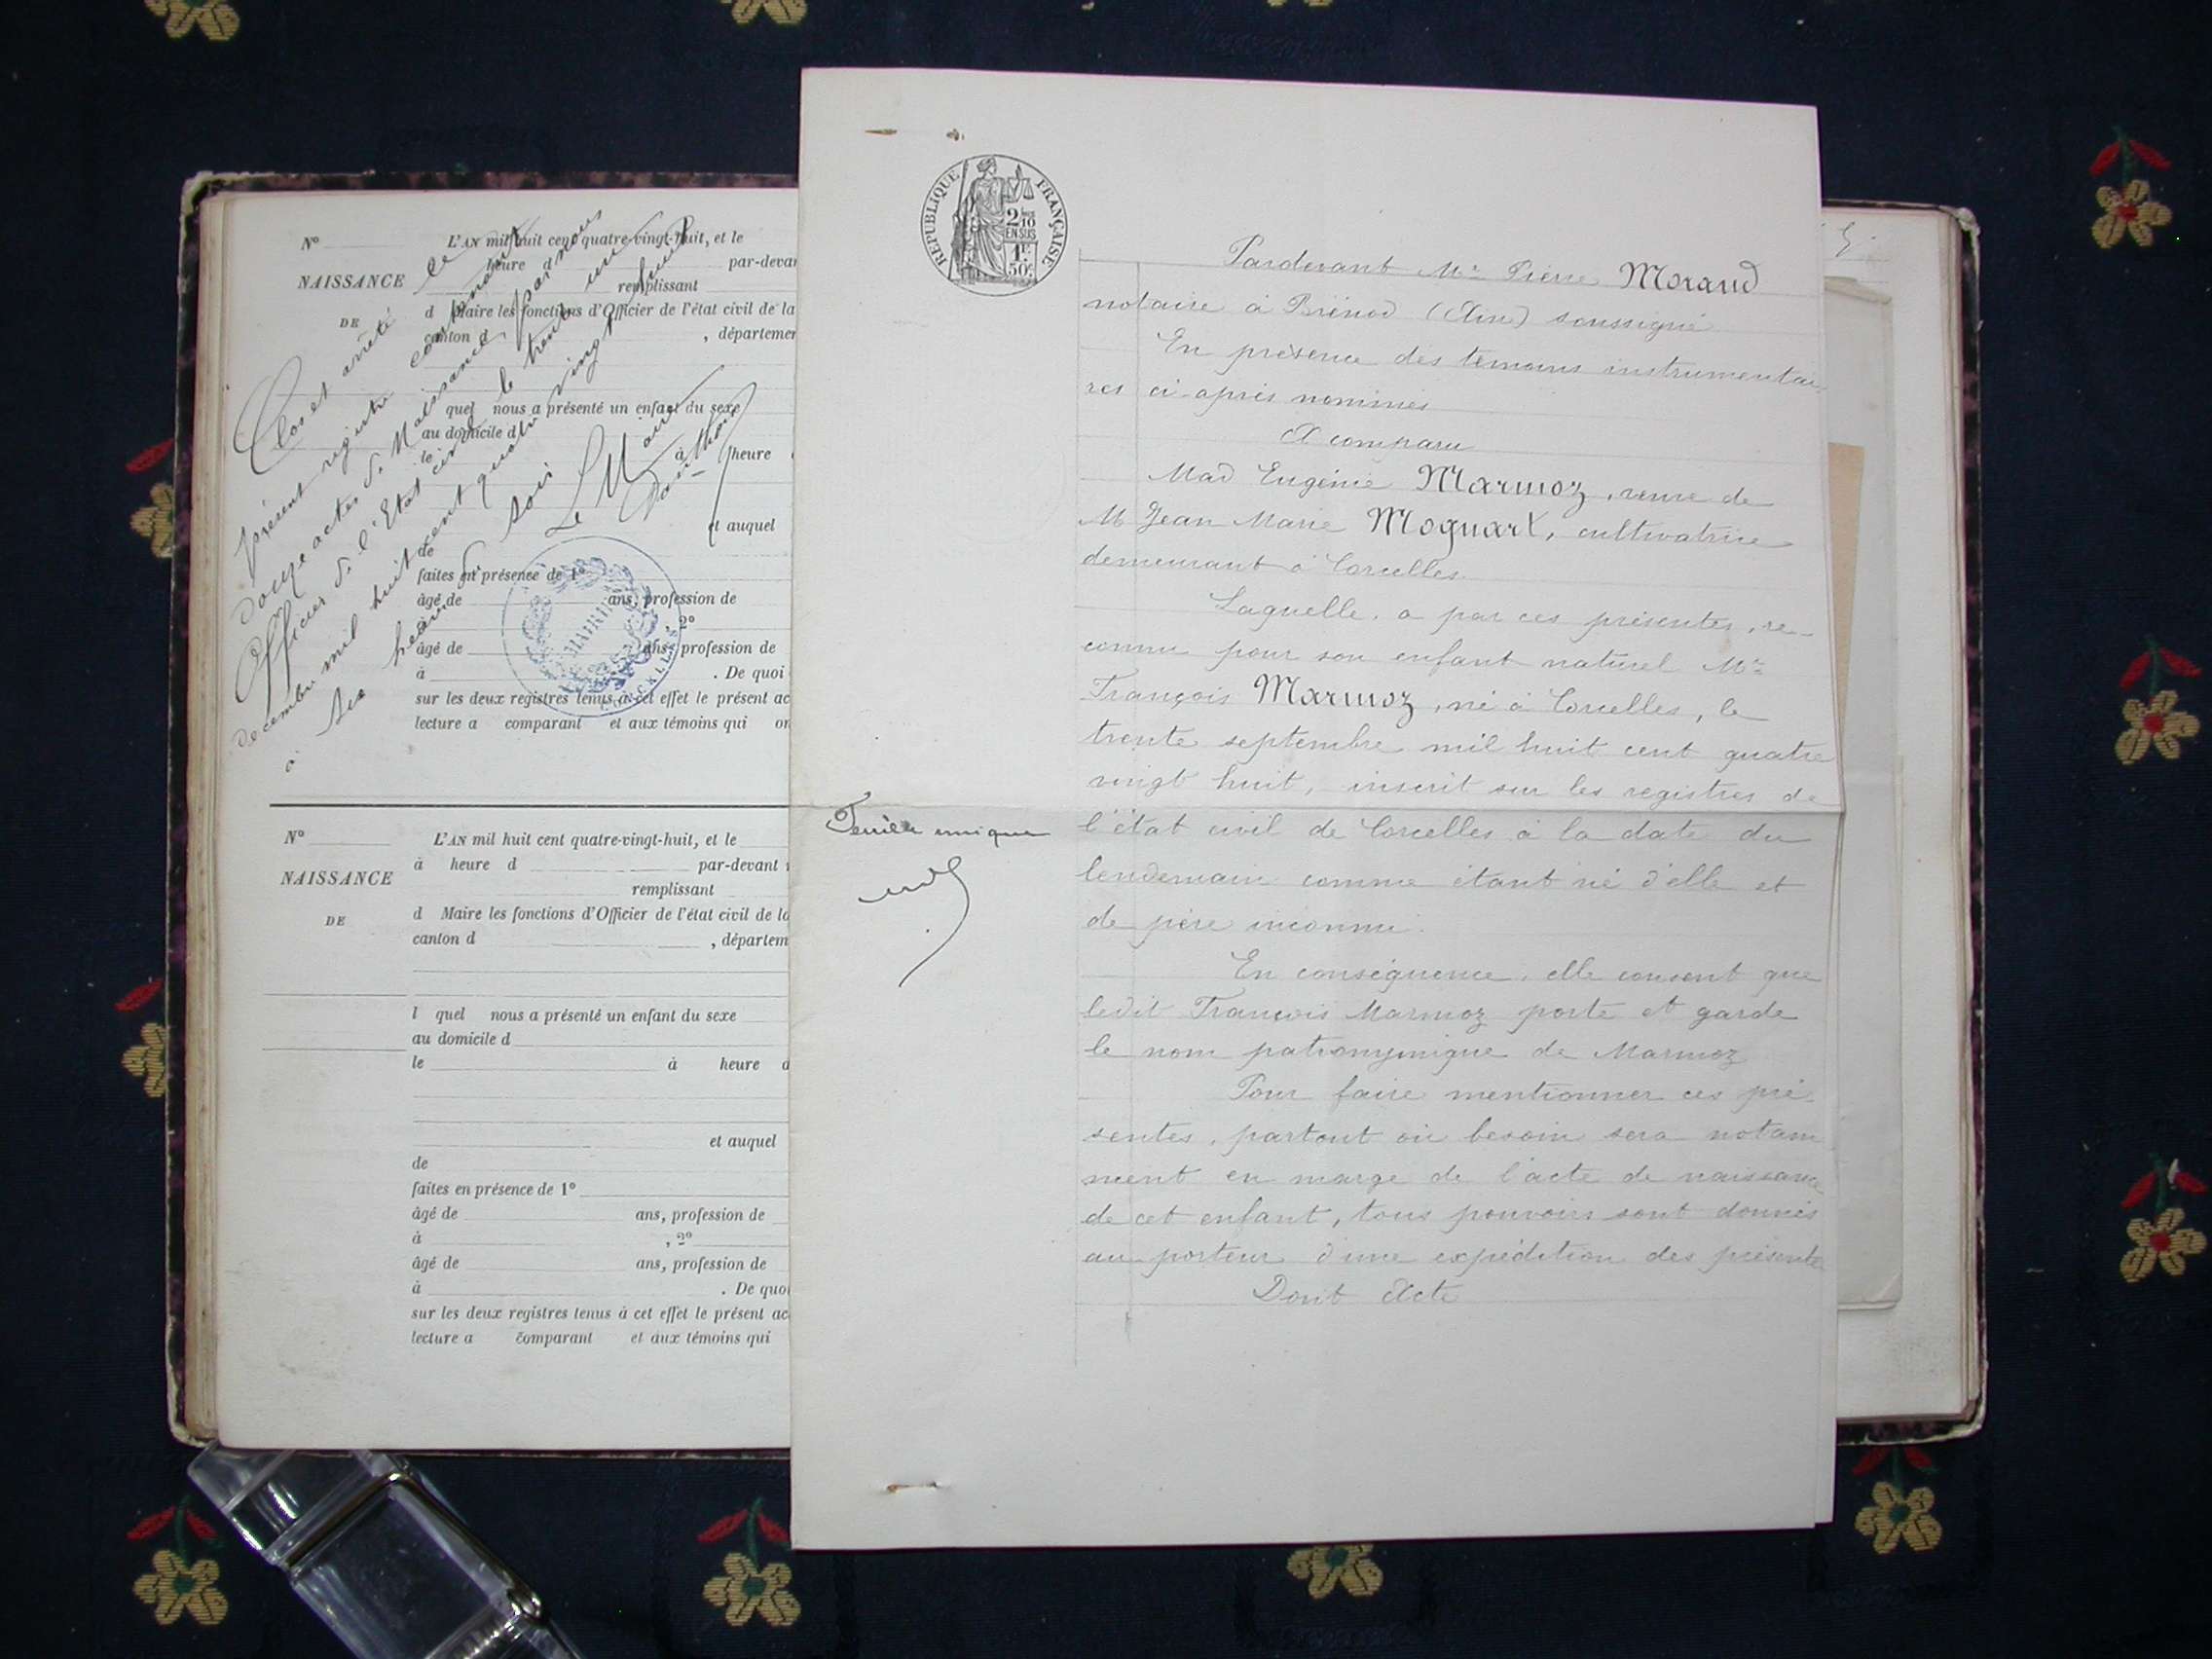 N°
NAISSANCE
DE
L'AN mil huit cent quatre-vingt-huit, et le
heure d par-devan
remplissant
d Maire les fonctions d'Officier de l'état civil de la
canton d , départemen
quel nous a présenté un enfant du sexe
au domicile d
le à heure
et auquel
de
faites en présence de 1°
âgé de ans, profession de
à , 2°
âgé de ans, profession de
à . De quoi
sur les deux registres tenus à cet effet le présent ac
lecture a comparant et aux témoins qui on
Clos et arrêté le
présent registre comprenant
douze actes de Naissance, par nous
Officier de l'Etat civil le trente un
décembre mil huit cent quatre vingt huit
à six heures du soir
Le Maire
MAIRIE
CORCELLES
N°
NAISSANCE
DE
L'AN mil huit cent quatre-vingt-huit, et le
à heure d par-devant
remplissant
d Maire les fonctions d'Officier de l'état civil de la
canton d , départem
l quel nous a présenté un enfant du sexe
au domicile d
le à heure d
et auquel
de
faites en présence de 1°
âgé de ans, profession de
à , 2°
âgé de ans, profession de
à . De quoi
sur les deux registres tenus à cet effet le présent ac
lecture a comparant et aux témoins qui
REPUBLIQUE FRANÇAISE
2/10
EN SUS
1F.
50c.
Pardevant Me Pierre Morand
notaire à Brénod (Ain) soussigné
En présence des témoins instrumentai
res ci-après nommés
A comparu
Mad Eugénie Marmoz, veuve de
M Jean Marie Moguart, cultivatrice
demeurant à Corcelles.
Laquelle, a par ces présentes, re-
connu pour son enfant naturel Mr
François Marmoz, né à Corcelles, le
trente septembre mil huit cent quatre
vingt huit, inscrit sur les registres de
l'état civil de Corcelles à la date du
lendemain comme étant né d'elle et
de père inconnu.
En conséquence, elle consent que
ledit François Marmoz porte et garde
le nom patronymique de Marmoz
Pour faire mentionner ces pré-
sentes, partout où besoin sera notam
ment en marge de l'acte de naissance
de cet enfant, tous pouvoirs sont donnés
au porteur d'une expédition des présentes
Dont Acte
Feuille unique